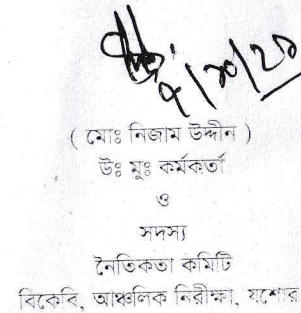 ( মোঃ নিজাম উদ্দীন )
উঃ মুঃ কর্মকর্তা
ও
সদস্য
নৈতিকতা কমিটি
বিকেবি, আঞ্চলিক নিরীক্ষা, যশোর